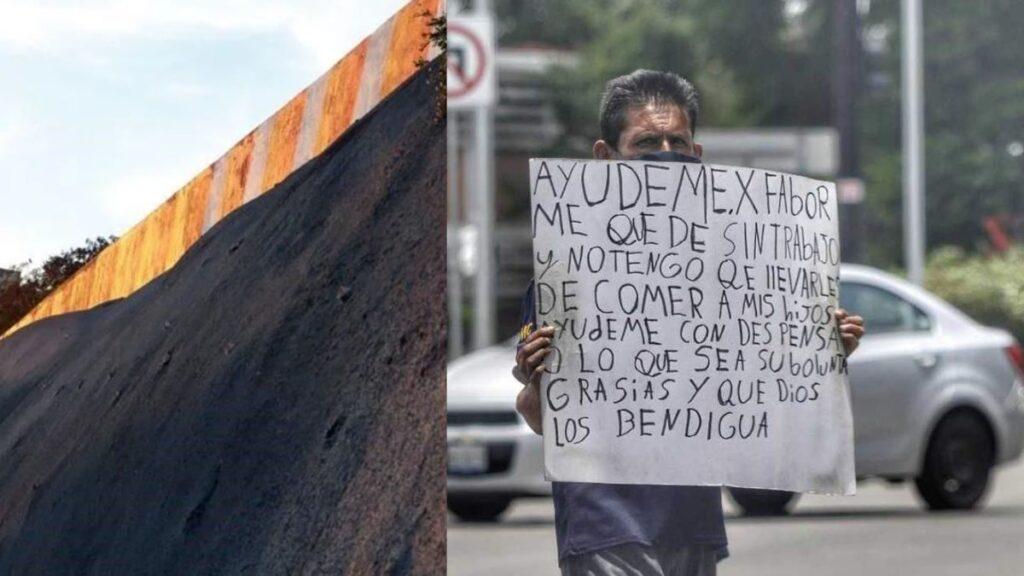 AYUDEME.XFAbOR
ME QUE DE SINTRABAJO
Y NOTENGO QUE llEVARLES
DE COMER A MIS hijOS
AYUdEME CON DESPENSA
O LO QUE SEA SUbOlUNTA
GRASIAS Y QUE DiOS
LOS BENDIGUA